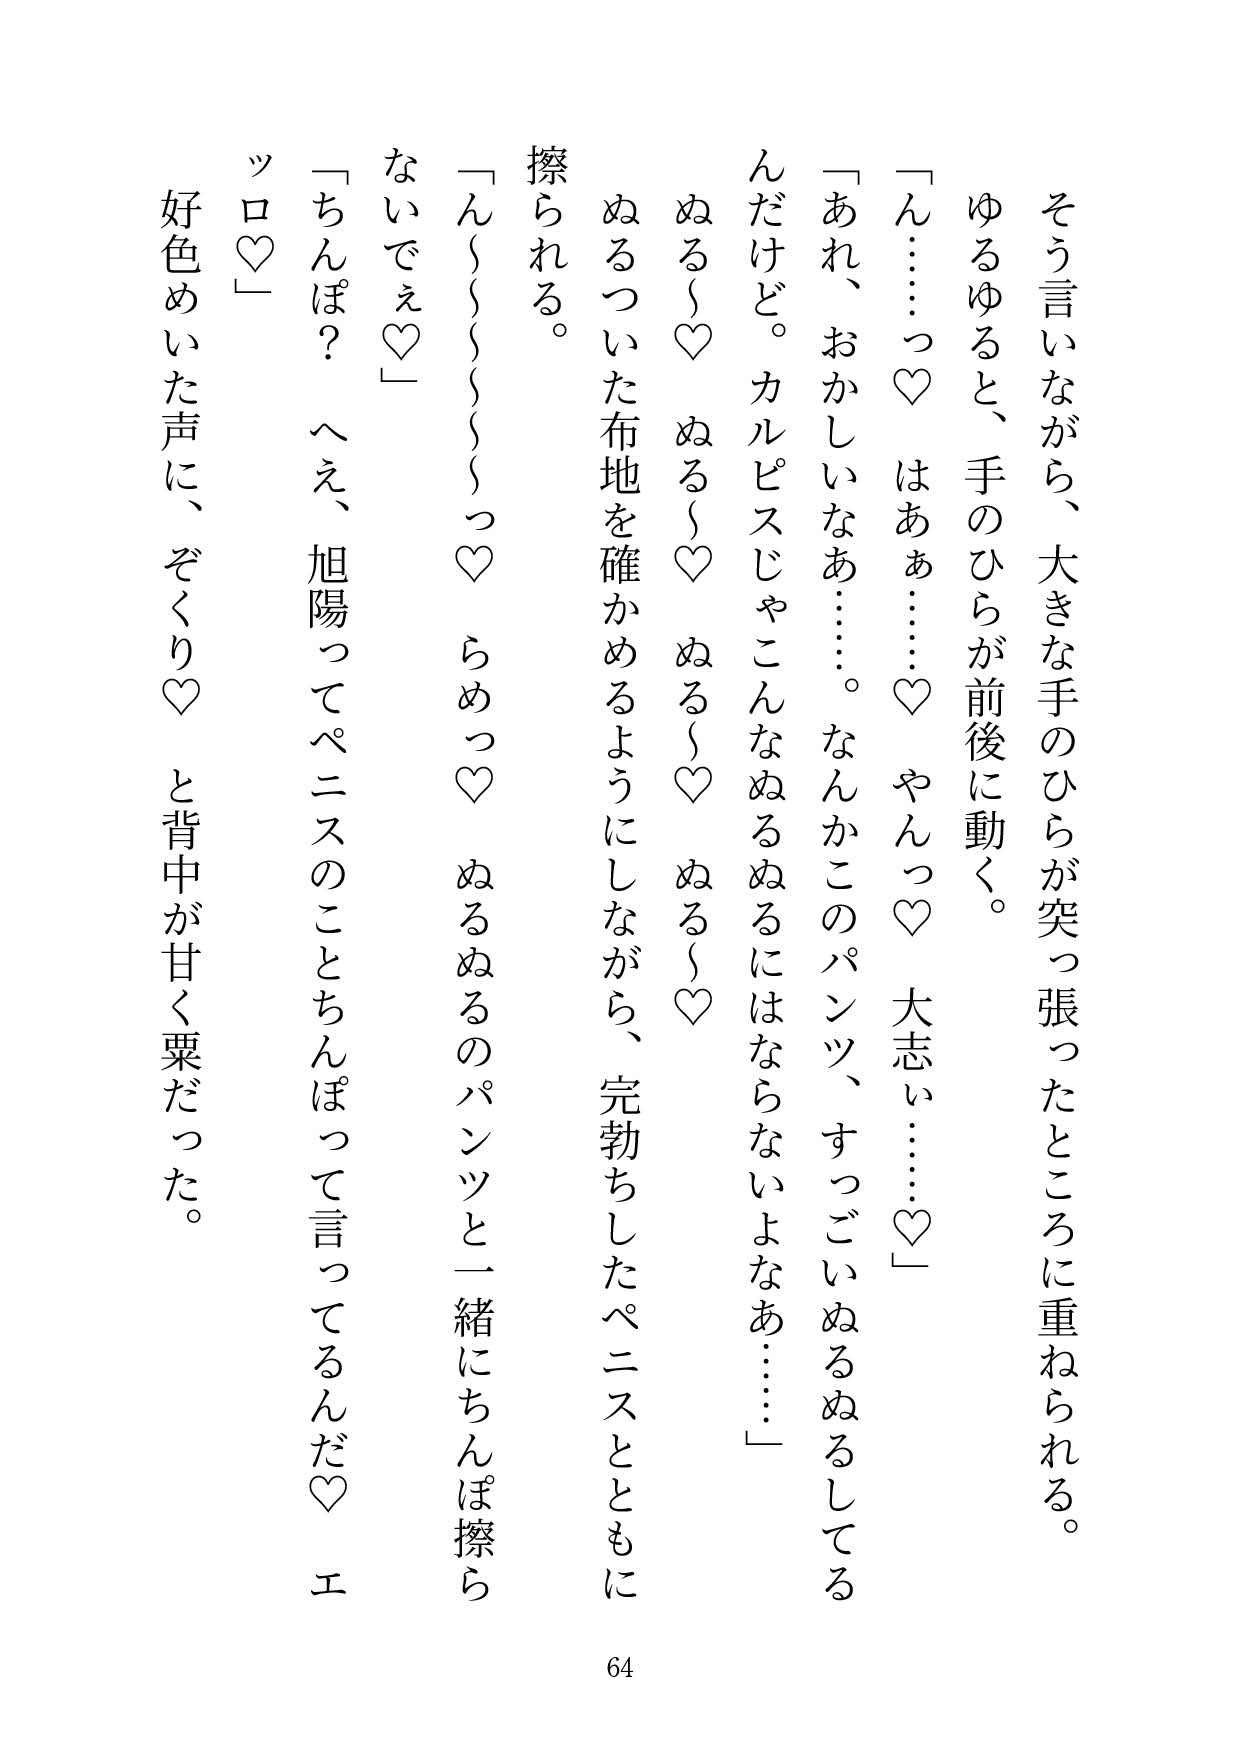 そう言いながら、大きな手のひらが突っ張ったところに重ねられる。
ゆるゆると、手のひらが前後に動く。
「ん……っ♡　はあぁ……♡　やんっ♡　大志ぃ……♡」
「あれ、おかしいなあ……。なんかこのパンツ、すっごいぬるぬるしてる
んだけど。カルピスじゃこんなぬるぬるにはならないよなあ……」
ぬる〜♡　ぬる〜♡　ぬる〜♡　ぬる〜♡
ぬるついた布地を確かめるようにしながら、完勃ちしたペニスとともに
擦られる。
「ん〜〜〜〜〜〜っ♡　らめっ♡　ぬるぬるのパンツと一緒にちんぽ擦ら
ないでぇ♡」
「ちんぽ？　へえ、旭陽ってペニスのことちんぽって言ってるんだ♡　エ
ッロ♡」
好色めいた声に、ぞくり♡　と背中が甘く粟だった。
64